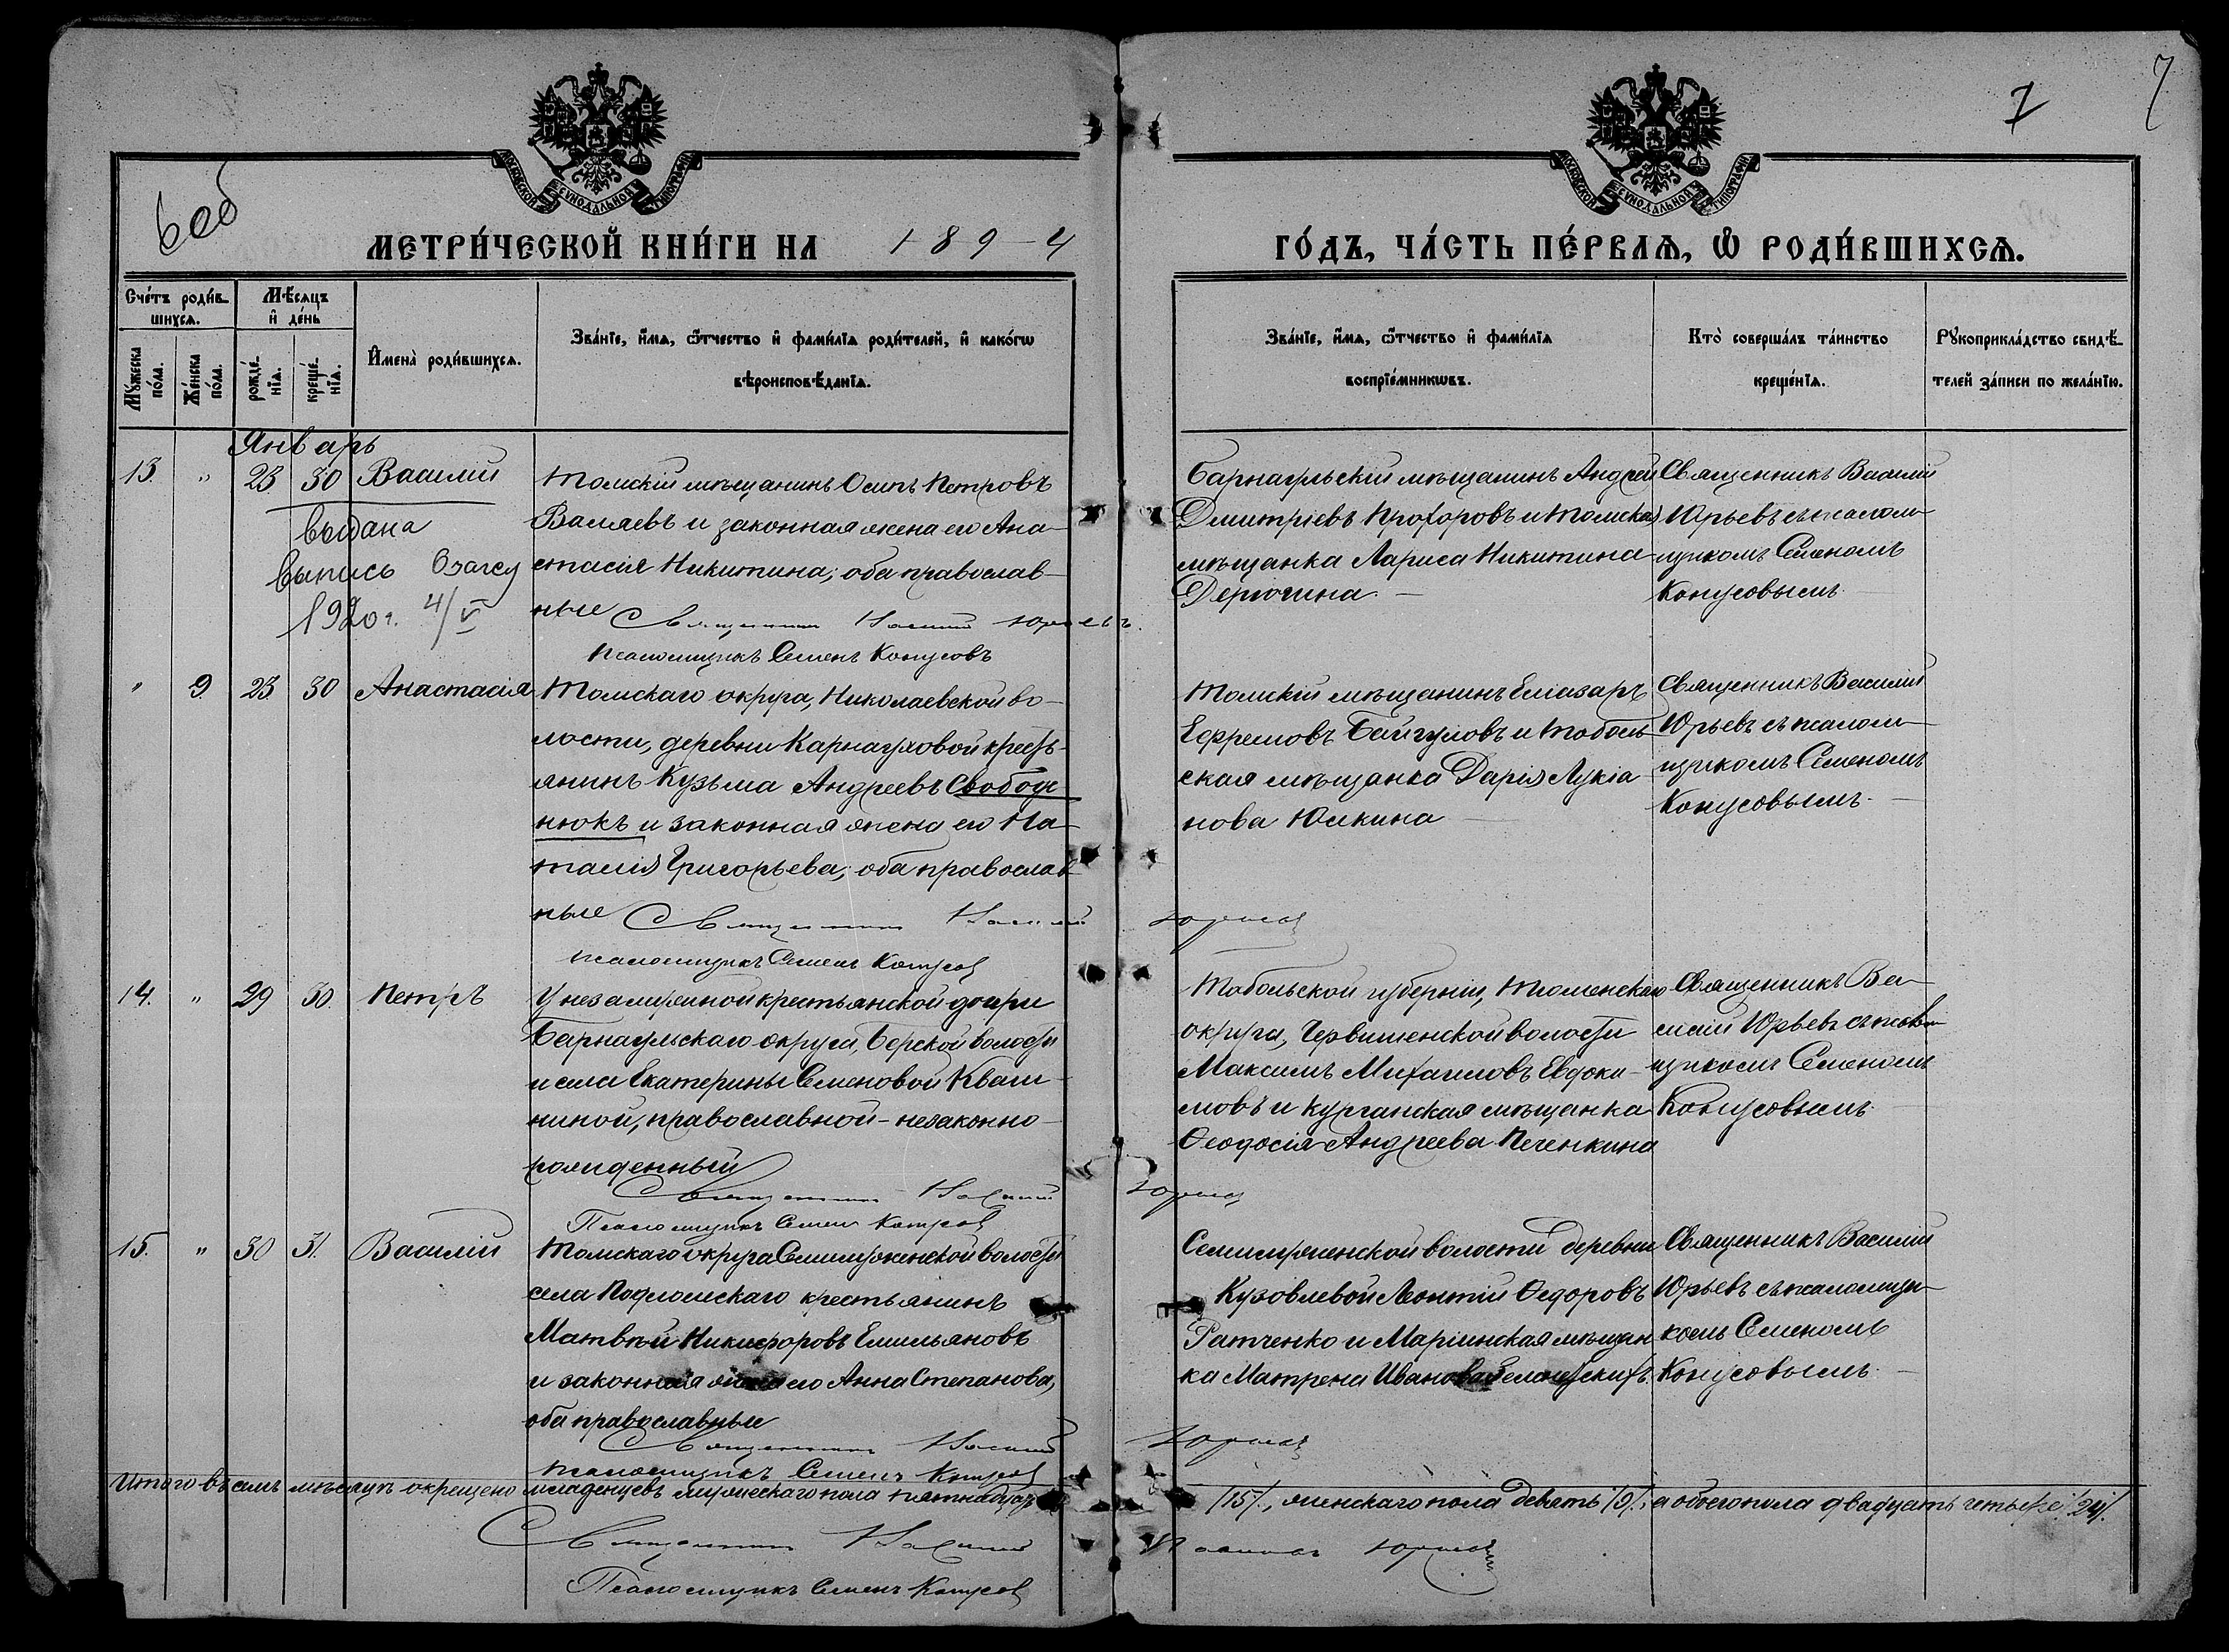 7
7
6об
МОСКОВСКОЙ СѴНОДАЛЬНОЙ ТИПОГРАФІИ
МОСКОВСКОЙ СѴНОДАЛЬНОЙ ТИПОГРАФІИ
МЕТРИ́ЧЕСКОЙ КНИ́ГИ НА 1894
ГО́ДЪ, ЧА́СТЬ ПЕ́РВАѦ, Ѽ РОДИ́ВШИХСѦ.
Счётъ роди́в-
шихсѧ.
Мѣ́сѧцъ
и҆ де́нь
Мꙋ́жеска
по́ла.
Же́нска
по́ла.
рожде́-
нїѧ.
креще́-
нїѧ.
И҆мена̀ роди́вшихсѧ.
Зва́нїе, и҆́мѧ, ѻ҆́тчество и҆ фамі́лїѧ роди́телей, и҆ како́гѡ
вѣроисповѣ́данїѧ.
Зва́нїе, и҆́мѧ, ѻ҆́тчество и҆ фамі́лїѧ
воспрїе́мникѡвъ.
Кто̀ соверша́лъ та́инство
креще́нїѧ.
Рꙋкоприкла́дство свидѣ́-
телей за́писи по жела́нїю.
Январь
13. " 23 30 Василій
Томскій мѣщанинъ Осипъ Петровъ
Валяевъ и законная жена его Ана-
стасія Никитина; оба православ-
ные Священникъ Василій Юрьевъ.
Псаломщикъ Семенъ Конусовъ
выдана
выпись Взагсу
1920г. 4/VI
Барнаульскій мѣщанинъ Андрей
Дмитріевъ Прохоровъ и Томская
мѣщанка Лариса Никитина
Дерюгина.
Священникъ Василій
Юрьевъ съ псалом-
щикомъ Семеномъ
Конусовымъ.
" 9. 23 30 Анастасія
Томскаго округа, Николаевской во-
лости, деревни Карнауховой кресть-
янинъ Кузьма Андреевъ Свобод-
нюкъ и законная жена его На-
талія Григорьева; оба православ-
ные Священникъ Василій Юрьевъ
Псаломщикъ Семенъ Конусовъ
Томскій мѣщанинъ Елиазаръ
Ефремовъ Байгуловъ и Тоболь-
ская мѣщанка Дарія Лукіа-
нова Юшкина
Священникъ Василій
Юрьевъ съ псалом-
щикомъ Семеномъ
Конусовымъ.
14. " 29 30. Петръ
У незамужной крестьянской дочери
Барнаульскаго округа, Берской волости
и села Екатерины Семеновой Кваш-
ниной, православной - незаконно-
рожденный
Священникъ Василій Юрьевъ
Псаломщикъ Семенъ Конусовъ
Тобольской губерніи, Тюменскаго
округа, Червишенской волости
Максимъ Михаиловъ Евдоки-
мовъ и курганская мѣщанка
Ѳеодосія Андреева Печенкина
Священникъ Ва-
силій Юрьевъ съ псалом-
щикомъ Семеномъ
Конусовымъ.
15. " 30 31. Василій
Томскаго округа Семилуженской волости
села Подломскаго крестьянинъ
Матвѣй Никифоровъ Емильяновъ
и законная жена его Анна Степанова,
оба православные
Священникъ Василій Юрьевъ
Псаломщикъ Семенъ Конусовъ
Семилуженской волости деревни
Кузовлевой Леонтій Ѳедоровъ
Ратченко и Маріинская мѣщан-
ка Матрена Иванова
Священникъ Василій
Юрьевъ съ псаломщи-
комъ Семеномъ
Конусовымъ.
Итого въ семъ мѣсяцѣ окрещено младенцевъ мужескаго пола пятнадцать /15/., женскаго пола девять /9/., а обоего пола двадцать четыре. /24/.
Священникъ Василій Юрьевъ
Псаломщикъ Семенъ Конусовъ